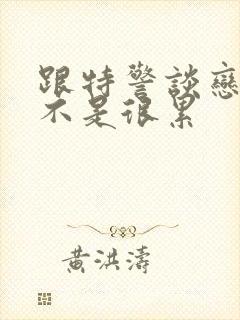 跟特警談戀
不是很累
黃洪濤